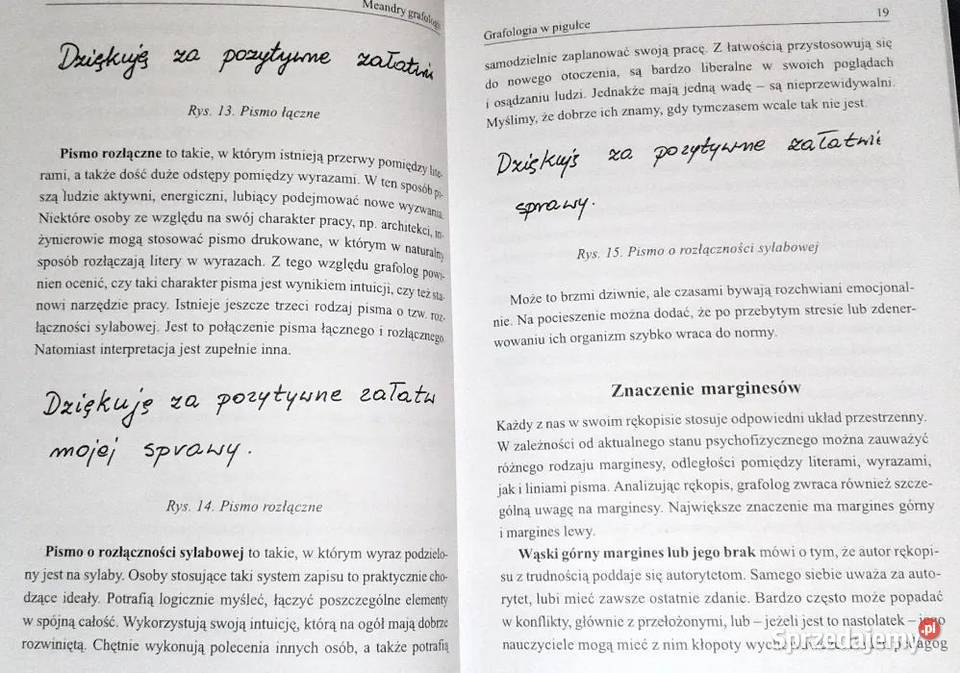 Meandry grafologii
Dziękuję za pozytywne załatwi
Rys. 13. Pismo łączne
Pismo rozłączne to takie, w którym istnieją przerwy pomiędzy lite-
rami, a także dość duże odstępy pomiędzy wyrazami. W ten sposób pi-
szą ludzie aktywni, energiczni, lubiący podejmować nowe wyzwania.
Niektóre osoby ze względu na swój charakter pracy, np. architekci, in-
żynierowie mogą stosować pismo drukowane, w którym w naturalny
sposób rozłączają litery w wyrazach. Z tego względu grafolog powi-
nien ocenić, czy taki charakter pisma jest wynikiem intuicji, czy też sta-
nowi narzędzie pracy. Istnieje jeszcze trzeci rodzaj pisma o tzw. roz-
łączności sylabowej. Jest to połączenie pisma łącznego i rozłącznego.
Natomiast interpretacja jest zupełnie inna.
Dziękuję za pozytywne załatw
mojej sprawy.
Rys. 14. Pismo rozłączne
Pismo o rozłączności sylabowej to takie, w którym wyraz podzielo-
ny jest na sylaby. Osoby stosujące taki system zapisu to praktycznie cho-
dzące ideały. Potrafią logicznie myśleć, łączyć poszczególne elementy
w spójną całość. Wykorzystują swoją intuicję, którą na ogół mają dobrze
rozwiniętą. Chętnie wykonują polecenia innych osób, a także potrafią
Grafologia w pigułce 19
samodzielnie zaplanować swoją pracę. Z łatwością przystosowują się
do nowego otoczenia, są bardzo liberalne w swoich poglądach
i osądzaniu ludzi. Jednakże mają jedną wadę – są nieprzewidywalni.
Myślimy, że dobrze ich znamy, gdy tymczasem wcale tak nie jest.
Dziękuję za pozytywne załatwie
sprawy.
Rys. 15. Pismo o rozłączności sylabowej
Może to brzmi dziwnie, ale czasami bywają rozchwiani emocjonal-
nie. Na pocieszenie można dodać, że po przebytym stresie lub zdener-
wowaniu ich organizm szybko wraca do normy.
Znaczenie marginesów
Każdy z nas w swoim rękopisie stosuje odpowiedni układ przestrzenny.
W zależności od aktualnego stanu psychofizycznego można zauważyć
różnego rodzaju marginesy, odległości pomiędzy literami, wyrazami,
jak i liniami pisma. Analizując rękopis, grafolog zwraca również szcze-
gólną uwagę na marginesy. Największe znaczenie ma margines górny
i margines lewy.
Wąski górny margines lub jego brak mówi o tym, że autor rękopi-
su z trudnością poddaje się autorytetom. Samego siebie uważa za auto-
rytet, lubi mieć zawsze ostatnie zdanie. Bardzo często może popadać
w konflikty, głównie z przełożonymi, lub – jeżeli jest to nastolatek – jego
nauczyciele mogą mieć z nim kłopoty
Sprzedajemy.pl